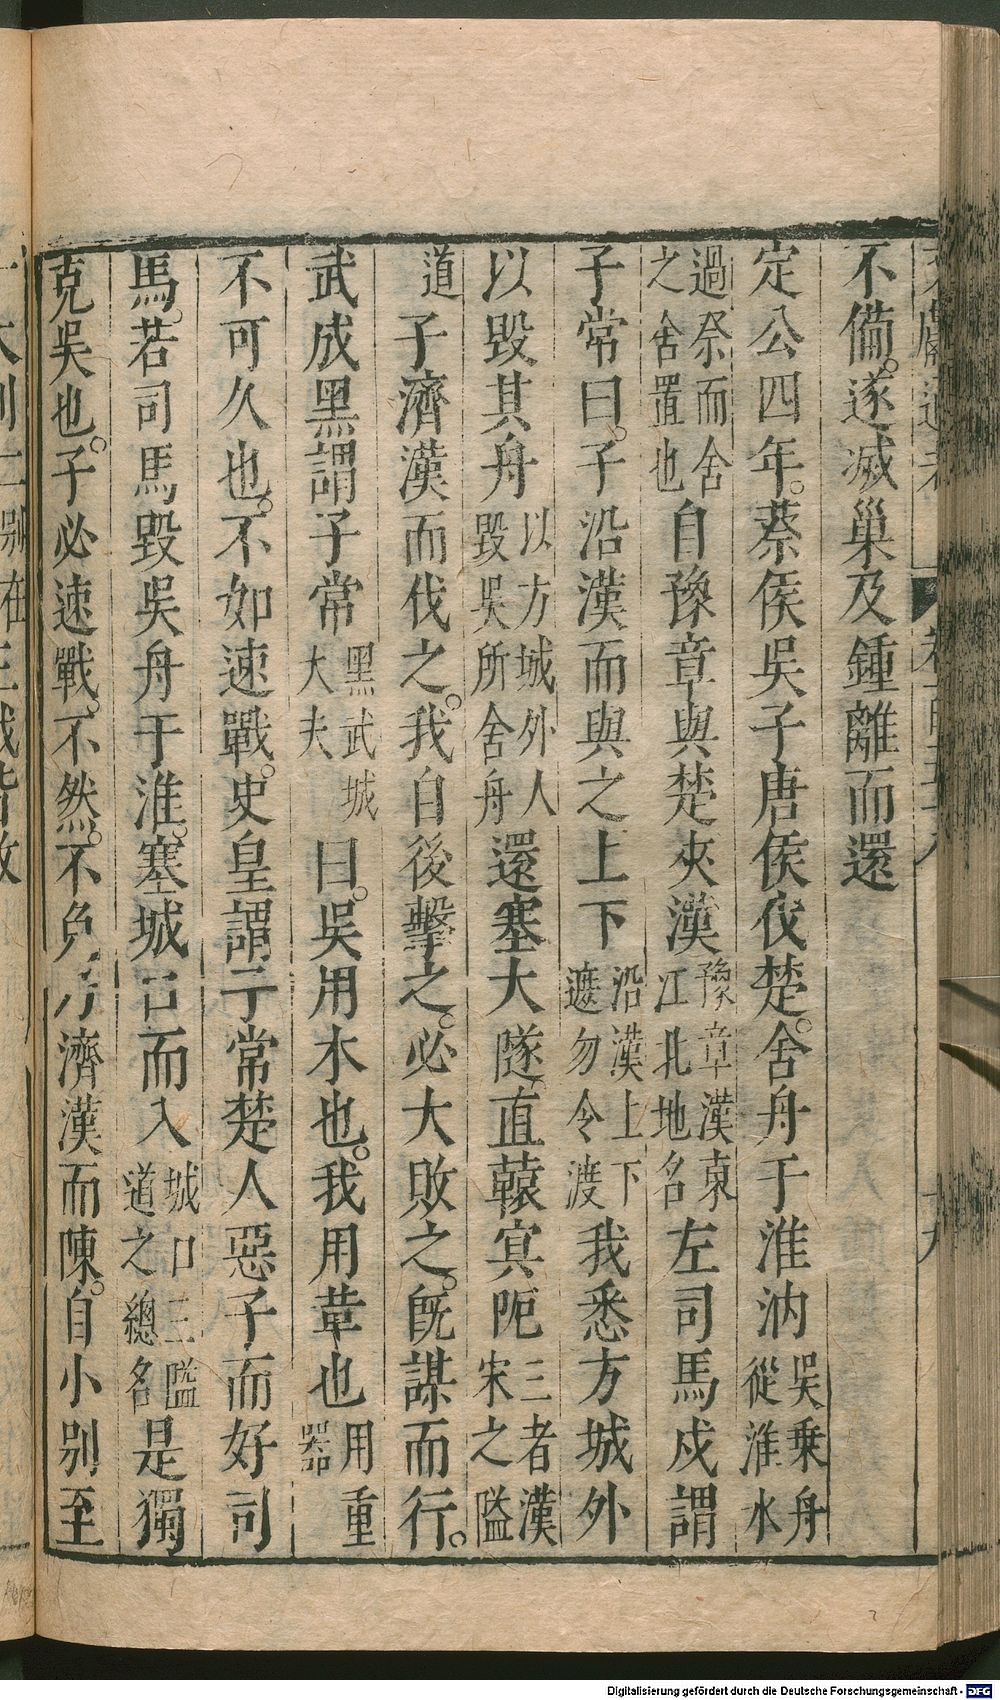 不備。遂滅巢及鍾離而還
定公四年。蔡侯吳子唐侯伐楚。舍舟于淮汭吳乗舟從淮水
過祭而舍之舍置也自豫章與楚夾漢豫章漢東江北地名左司馬戍謂
子常曰。子沿漢而與之上下沿漢上下遮勿令渡我悉方城外
以毀其舟以方城外人毀吳所舍舟還塞大隧直轅冥阨三者漢宋之隘
道子濟漢而伐之。我自後擊之。必大敗之。旣謀而行。
武成黑謂子常黑武城大夫曰。吳用木也。我用革也用重器
不可久也。不如速戰。史皇謂子常楚人惡子而好司
馬。若司馬毀吳舟于淮。塞城口而入城口三隘道之總名是獨
克吳也。子必速戰。不然。不免乃濟漢而陳。自小别至
Digitalisierung gefördert durch die Deutsche Forschungsgemeinschaft - DFG